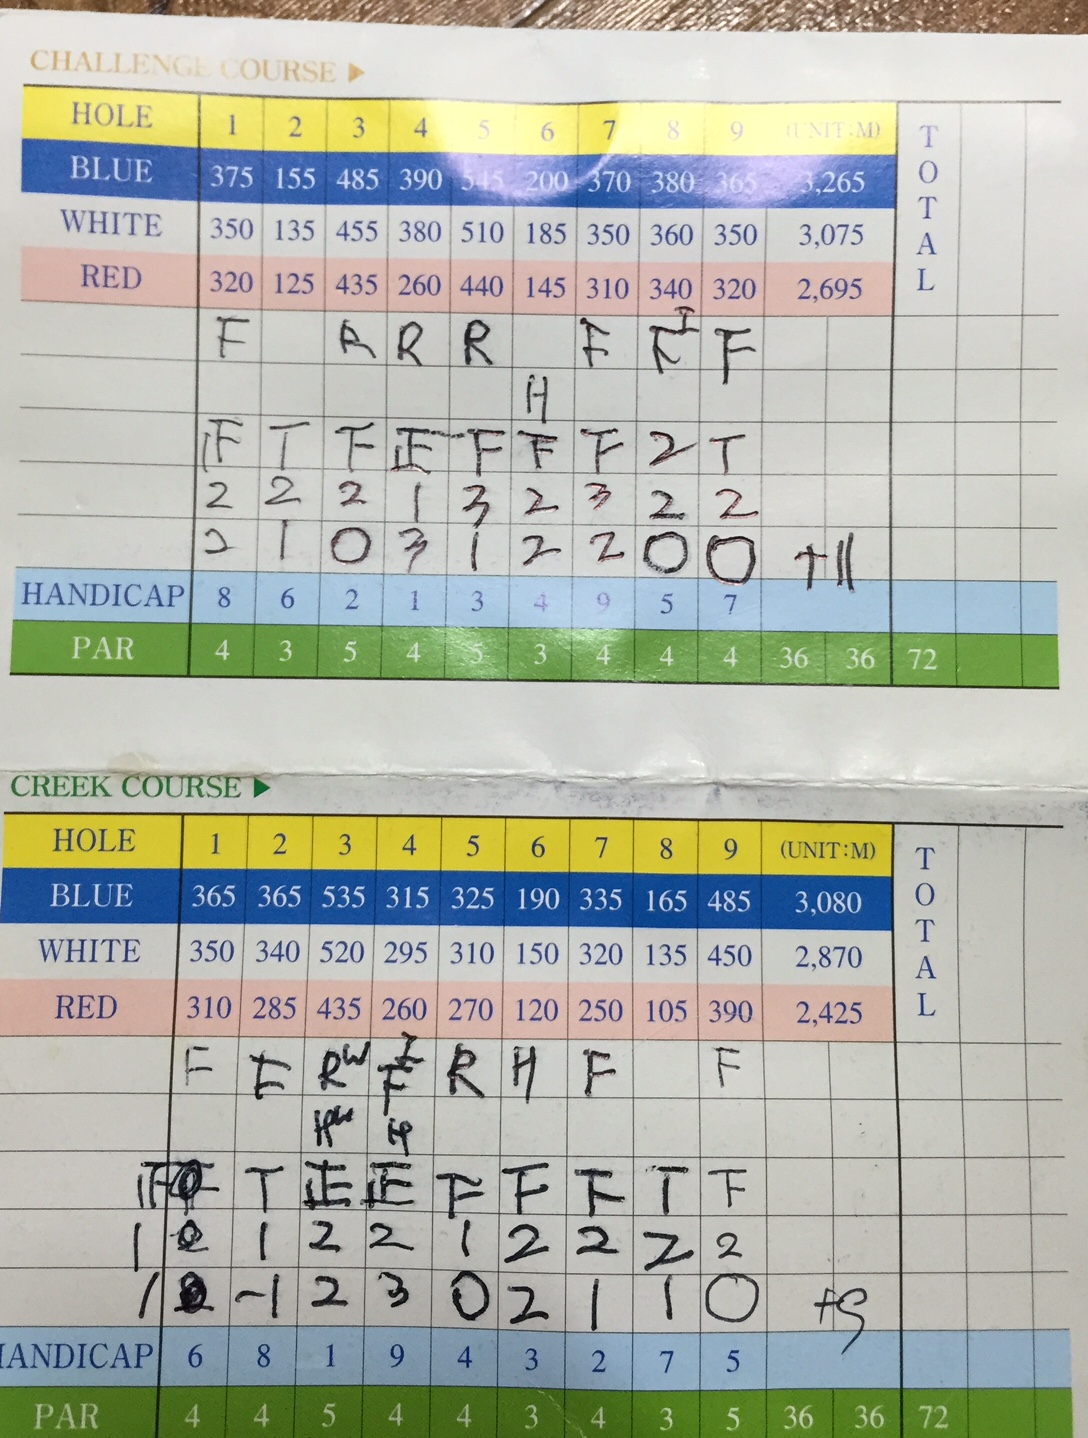 CHALLENGE COURSE ▶
HOLE 1 2 3 4 5 6 7 8 9 (UNIT:M) TOTAL
BLUE 375 155 485 390 545 200 370 380 365 3,265
WHITE 350 135 455 380 510 185 350 360 350 3,075
RED 320 125 435 260 440 145 310 340 320 2,695
F R R R F F I F
H
T F F F F 2 T
2 2 2 1 3 2 3 2 2
2 1 0 3 1 2 2 0 0 +11
HANDICAP 8 6 2 1 3 4 9 5 7
PAR 4 3 5 4 5 3 4 4 4 36 36 72
CREEK COURSE ▶
HOLE 1 2 3 4 5 6 7 8 9 (UNIT:M) TOTAL
BLUE 365 365 535 315 325 190 335 165 485 3,080
WHITE 350 340 520 295 310 150 320 135 450 2,870
RED 310 285 435 260 270 120 250 105 390 2,425
F F RW I F R H F F
T F F F T F
1 1 2 2 1 2 2 2 2
1 -1 2 3 0 2 1 1 0 +9
HANDICAP 6 8 1 9 4 3 2 7 5
PAR 4 4 5 4 4 3 4 3 5 36 36 72